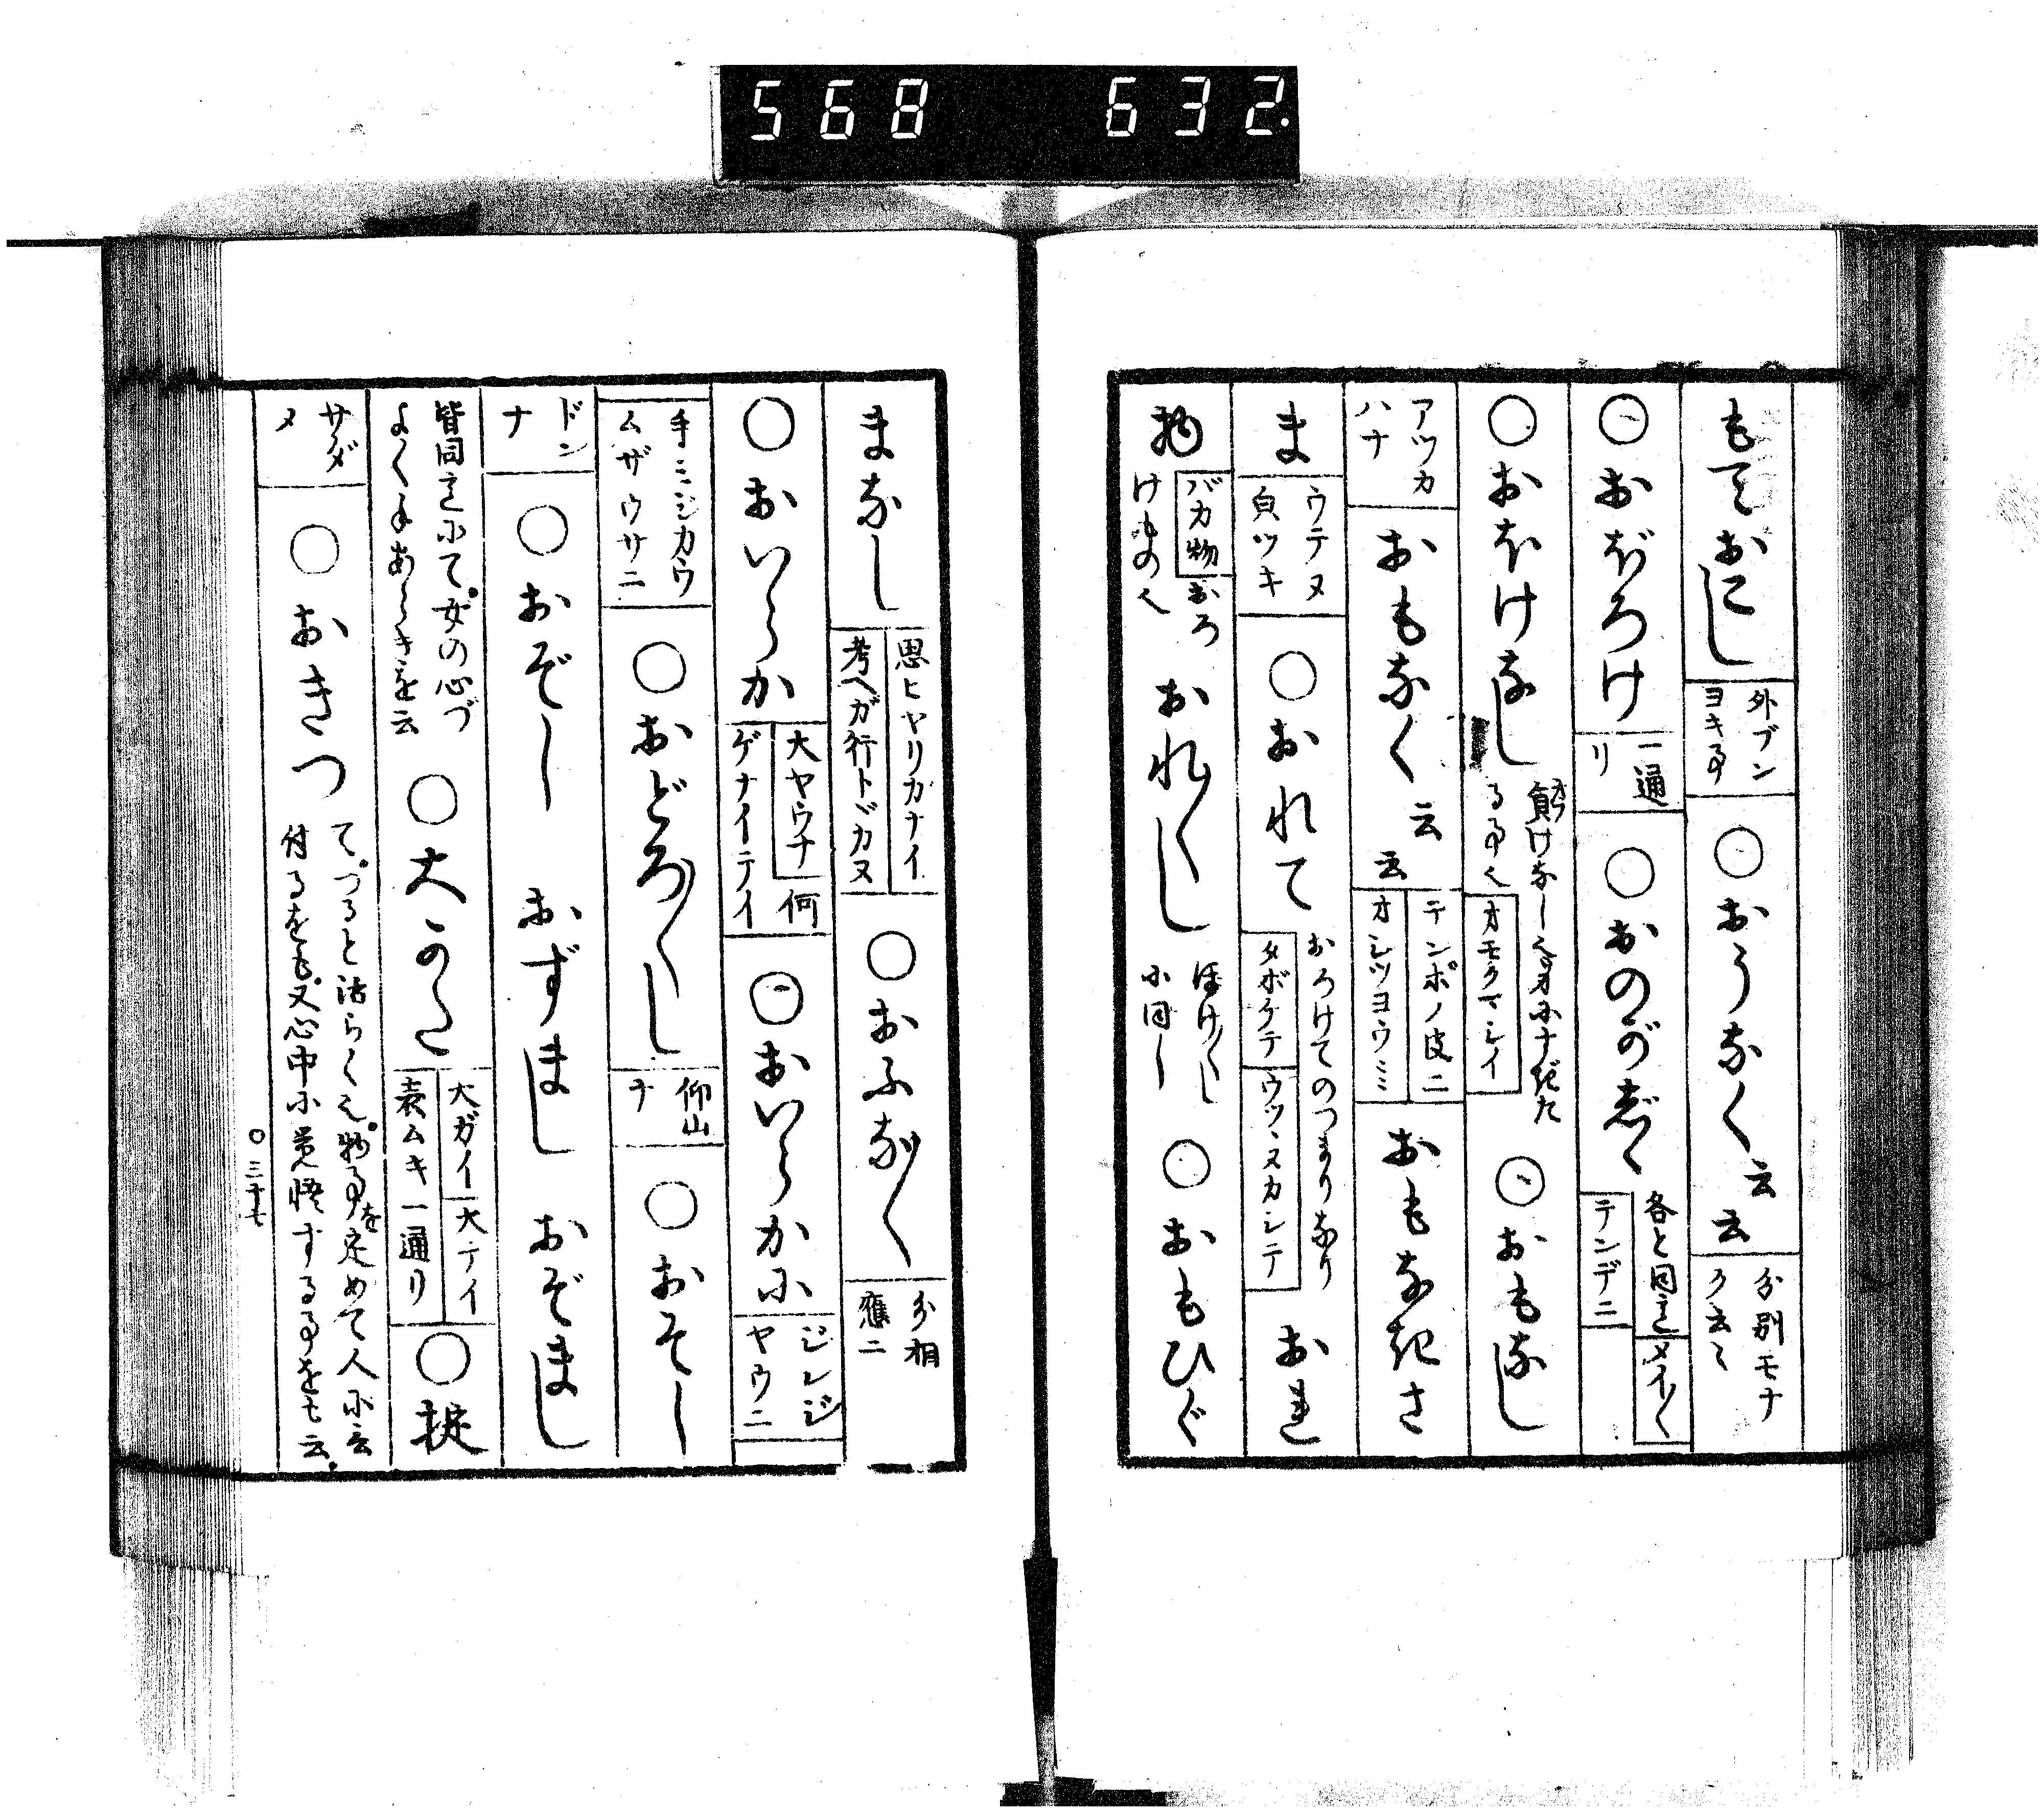 568 632
もておこし 外ブンヨキ事 ○おうなく云云 分別モナク云々
○おぼろけ 一通リ ○おのがじゝ 各と同シ メイ〱 テンデニ
○おほけなし 負けなしへ身ニナキたる事へ オモクマシイ ○おもなし
アツカハナ おもなく云云 テンポノ皮ニ オシツヨウミミ おもなきさ
ま ウテヌ㒵ツキ ○おれて おろけてのつまりなり タボケテ ウツヽヌカシテ おれ
物 バカ物 おろけものへ おれ〱し ほけ〱しに同し ○おもひぐ
まなし 思ヒヤリガナイ 考ヘガ行トヾカヌ ○おふな〱 分相應ニ
○おいらか 大ヤウナ 何ゲナイテイ ○おいらかに ジレジヤウニ
手ミジカウ ムザウサニ ○おどろ〱し 仰山ナ ○おそし
ドンナ ○おぞし おずまし おぞまし
皆同言にて。女の心づよく手あらきを云 ○大かた 大ガイ 大テイ 表ムキ一通リ ○掟
サダメ ○おきつ て。つると活らくへ。物事を定めて人に云付るをも。又心中に覚悟する事をも云。
○三十七